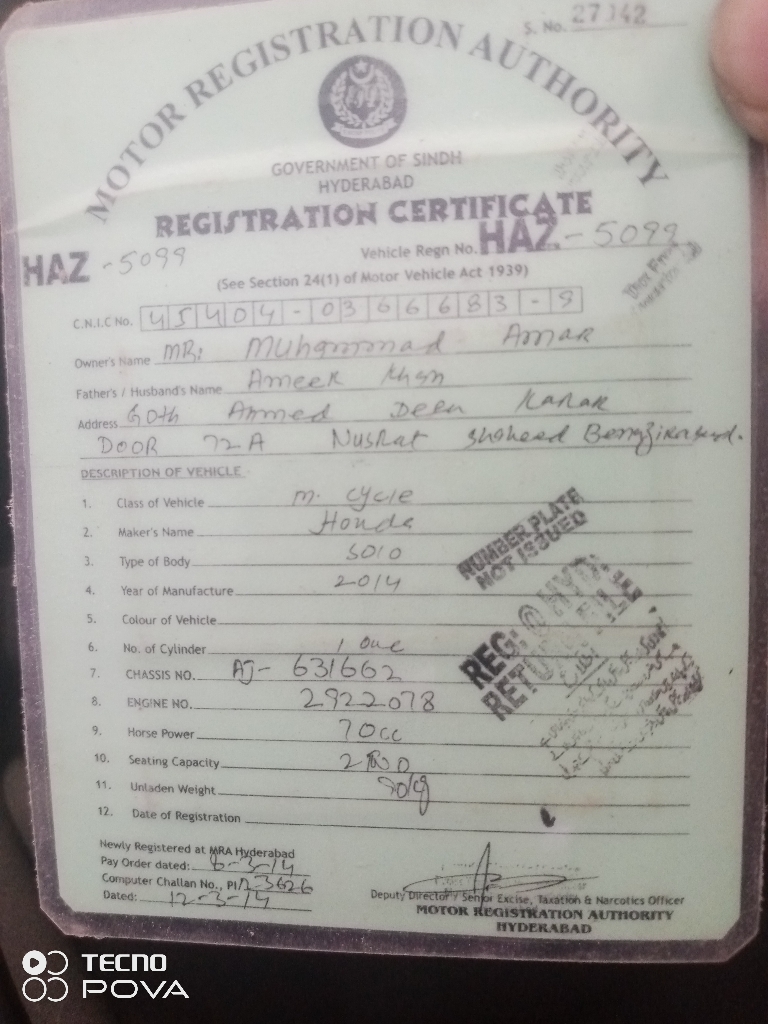 S. No. 27142
MOTOR REGISTRATION AUTHORITY
GOVERNMENT OF SINDH
HYDERABAD
REGISTRATION CERTIFICATE
HAZ-5099
Vehicle Regn No. HAZ-5099
(See Section 24(1) of Motor Vehicle Act 1939)
C.N.I.C No. 45404-0366683-9
Owner's Name MR: Muhammad Amar
Father's / Husband's Name Ameer Khan
Address Goth Ahmed Deen Karar
DOOR 72A Nusrat Shaheed
DESCRIPTION OF VEHICLE
1. Class of Vehicle M. Cycle
2. Maker's Name Honda
3. Type of Body Solo
4. Year of Manufacture 2014
NUMBER PLATE
NOT ISSUED
5. Colour of Vehicle
6. No. of Cylinder 1 One
REG: @ HYD:
RETURN FILE
7. CHASSIS NO. AJ-631662
8. ENGINE NO. 2922078
9. Horse Power 70cc
10. Seating Capacity
11. Unladen Weight
12. Date of Registration
Newly Registered at MRA Hyderabad
Pay Order dated: 6-3-14
Computer Challan No., 3626
Dated: 12-3-14
Deputy Director / Senior Excise, Taxation & Narcotics Officer
MOTOR REGISTRATION AUTHORITY
HYDERABAD
TECNO
POVA